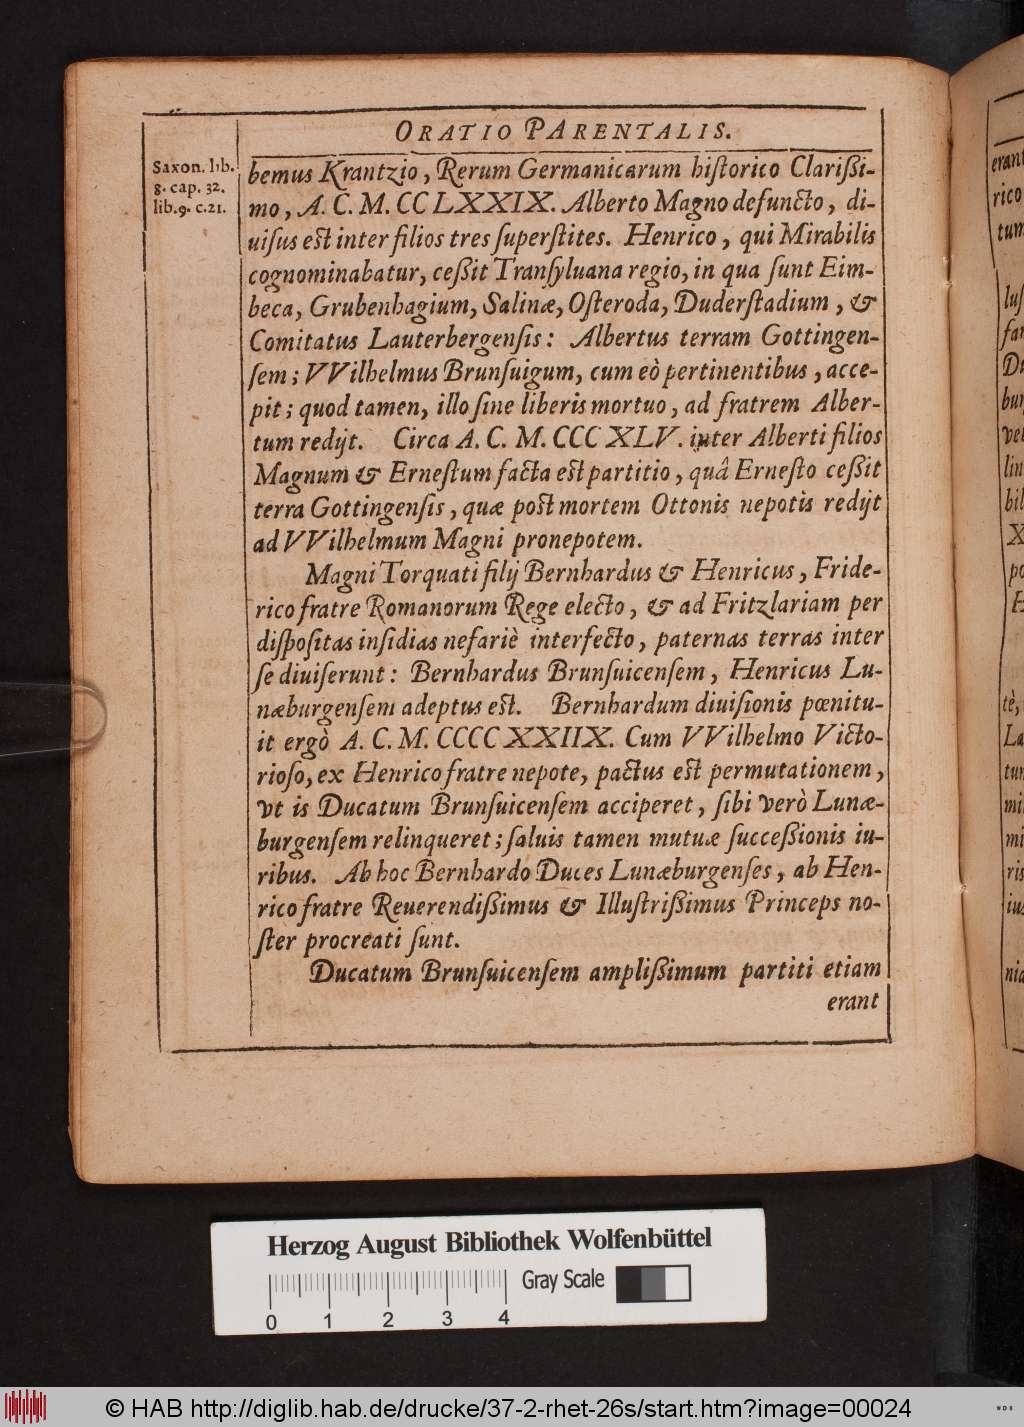 ORATIO PARENTALIS.
Saxon. lib.
8. cap. 32.
lib. 9. c. 21.
bemus Krantzio, Rerum Germanicarum hiſtorico Clarißi-
mo, A. C. M. CC LXXIX. Alberto Magno defuncto, di-
uiſus est inter filios tres ſuperſtites. Henrico, qui Mirabilis
cognominabatur, ceßit Tranſyluana regio, in qua ſunt Eim-
beca, Grubenhagium, Salinæ, Oſteroda, Duderſtadium, &
Comitatus Lauterbergenſis: Albertus terram Gottingen-
ſem; VVilhelmus Brunſuigum, cum eò pertinentibus, acce-
pit; quod tamen, illo ſine liberis mortuo, ad fratrem Alber-
tum redijt. Circa A. C. M. CCC XLV. inter Alberti filios
Magnum & Erneſtum facta est partitio, quâ Erneſto ceßit
terra Gottingenſis, quæ post mortem Ottonis nepotis redijt
ad VVilhelmum Magni pronepotem.
Magni Torquati filij Bernhardus & Henricus, Fride-
rico fratre Romanorum Rege electo, & ad Fritzlariam per
diſpoſitas inſidias nefariè interfecto, paternas terras inter
ſe diuiſerunt: Bernhardus Brunſuicenſem, Henricus Lu-
næburgenſem adeptus est. Bernhardum diuiſionis pœnitu-
it ergò A. C. M. CCCC XXIIX. Cum VVilhelmo Victo-
rioſo, ex Henrico fratre nepote, pactus est permutationem,
vt is Ducatum Brunſuicenſem acciperet, ſibi verò Lunæ-
burgenſem relinqueret; ſaluis tamen mutuæ ſucceßionis iu-
ribus. Ab hoc Bernhardo Duces Lunæburgenſes, ab Hen-
rico fratre Reuerendißimus & Illuſtrißimus Princeps no-
ſter procreati ſunt.
Ducatum Brunſuicenſem amplißimum partiti etiam
erant
erant
rico
tum
luſ
Du
bur
vel
lin
bil
X
po
H
tè,
La
tur
mi
mi
ris
ius
nia
Herzog August Bibliothek Wolfenbüttel
Gray Scale
0 1 2 3 4
© HAB http://diglib.hab.de/drucke/37-2-rhet-26s/start.htm?image=00024